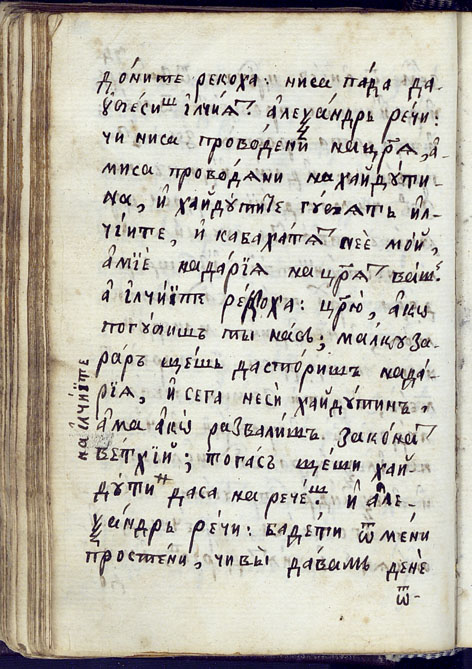 до́ните рекоха: ниса па́да да-
ꙋбеси́ш и҆лчїѧ҆т. а҆леѯа́ндръ ре́чи:
чи ниса прово́дени на цр҃ѧ, а҆
миса прово́дѧни на хайдꙋ́ти-
на, и҆ хайдꙋ́тите гꙋ́бѧтъ и҆л-
чі́ите, и҆ кабаха́тѧт нее̑ мо́й,
а҆мїѐ на да́рїѧ на цр҃ѧт ва́ш.
а҆ и҆лчи́їте реко́ха: цр҃ю̀, а҆кѡ
погꙋби́шъ ты на́съ; ма́лкꙋ за-
ра́ръ ще́шъ да сто́ришъ на да́-
рїѧ, и҆ сега неси̑ хайдꙋ́тинъ,
а҆ма а҆кѡ̀ развали́шъ зако́на
ве́тхїй; тога́съ ще́ши хай-
дꙋ́тин да са на рече́ш. и҆ а҆ле-
ѯа́ндръ ре́чи: ба́дети ѿ ме́ни
простени, чи вы̀ да́вамъ денѐ
ѿ-
на и҆лчи́їте